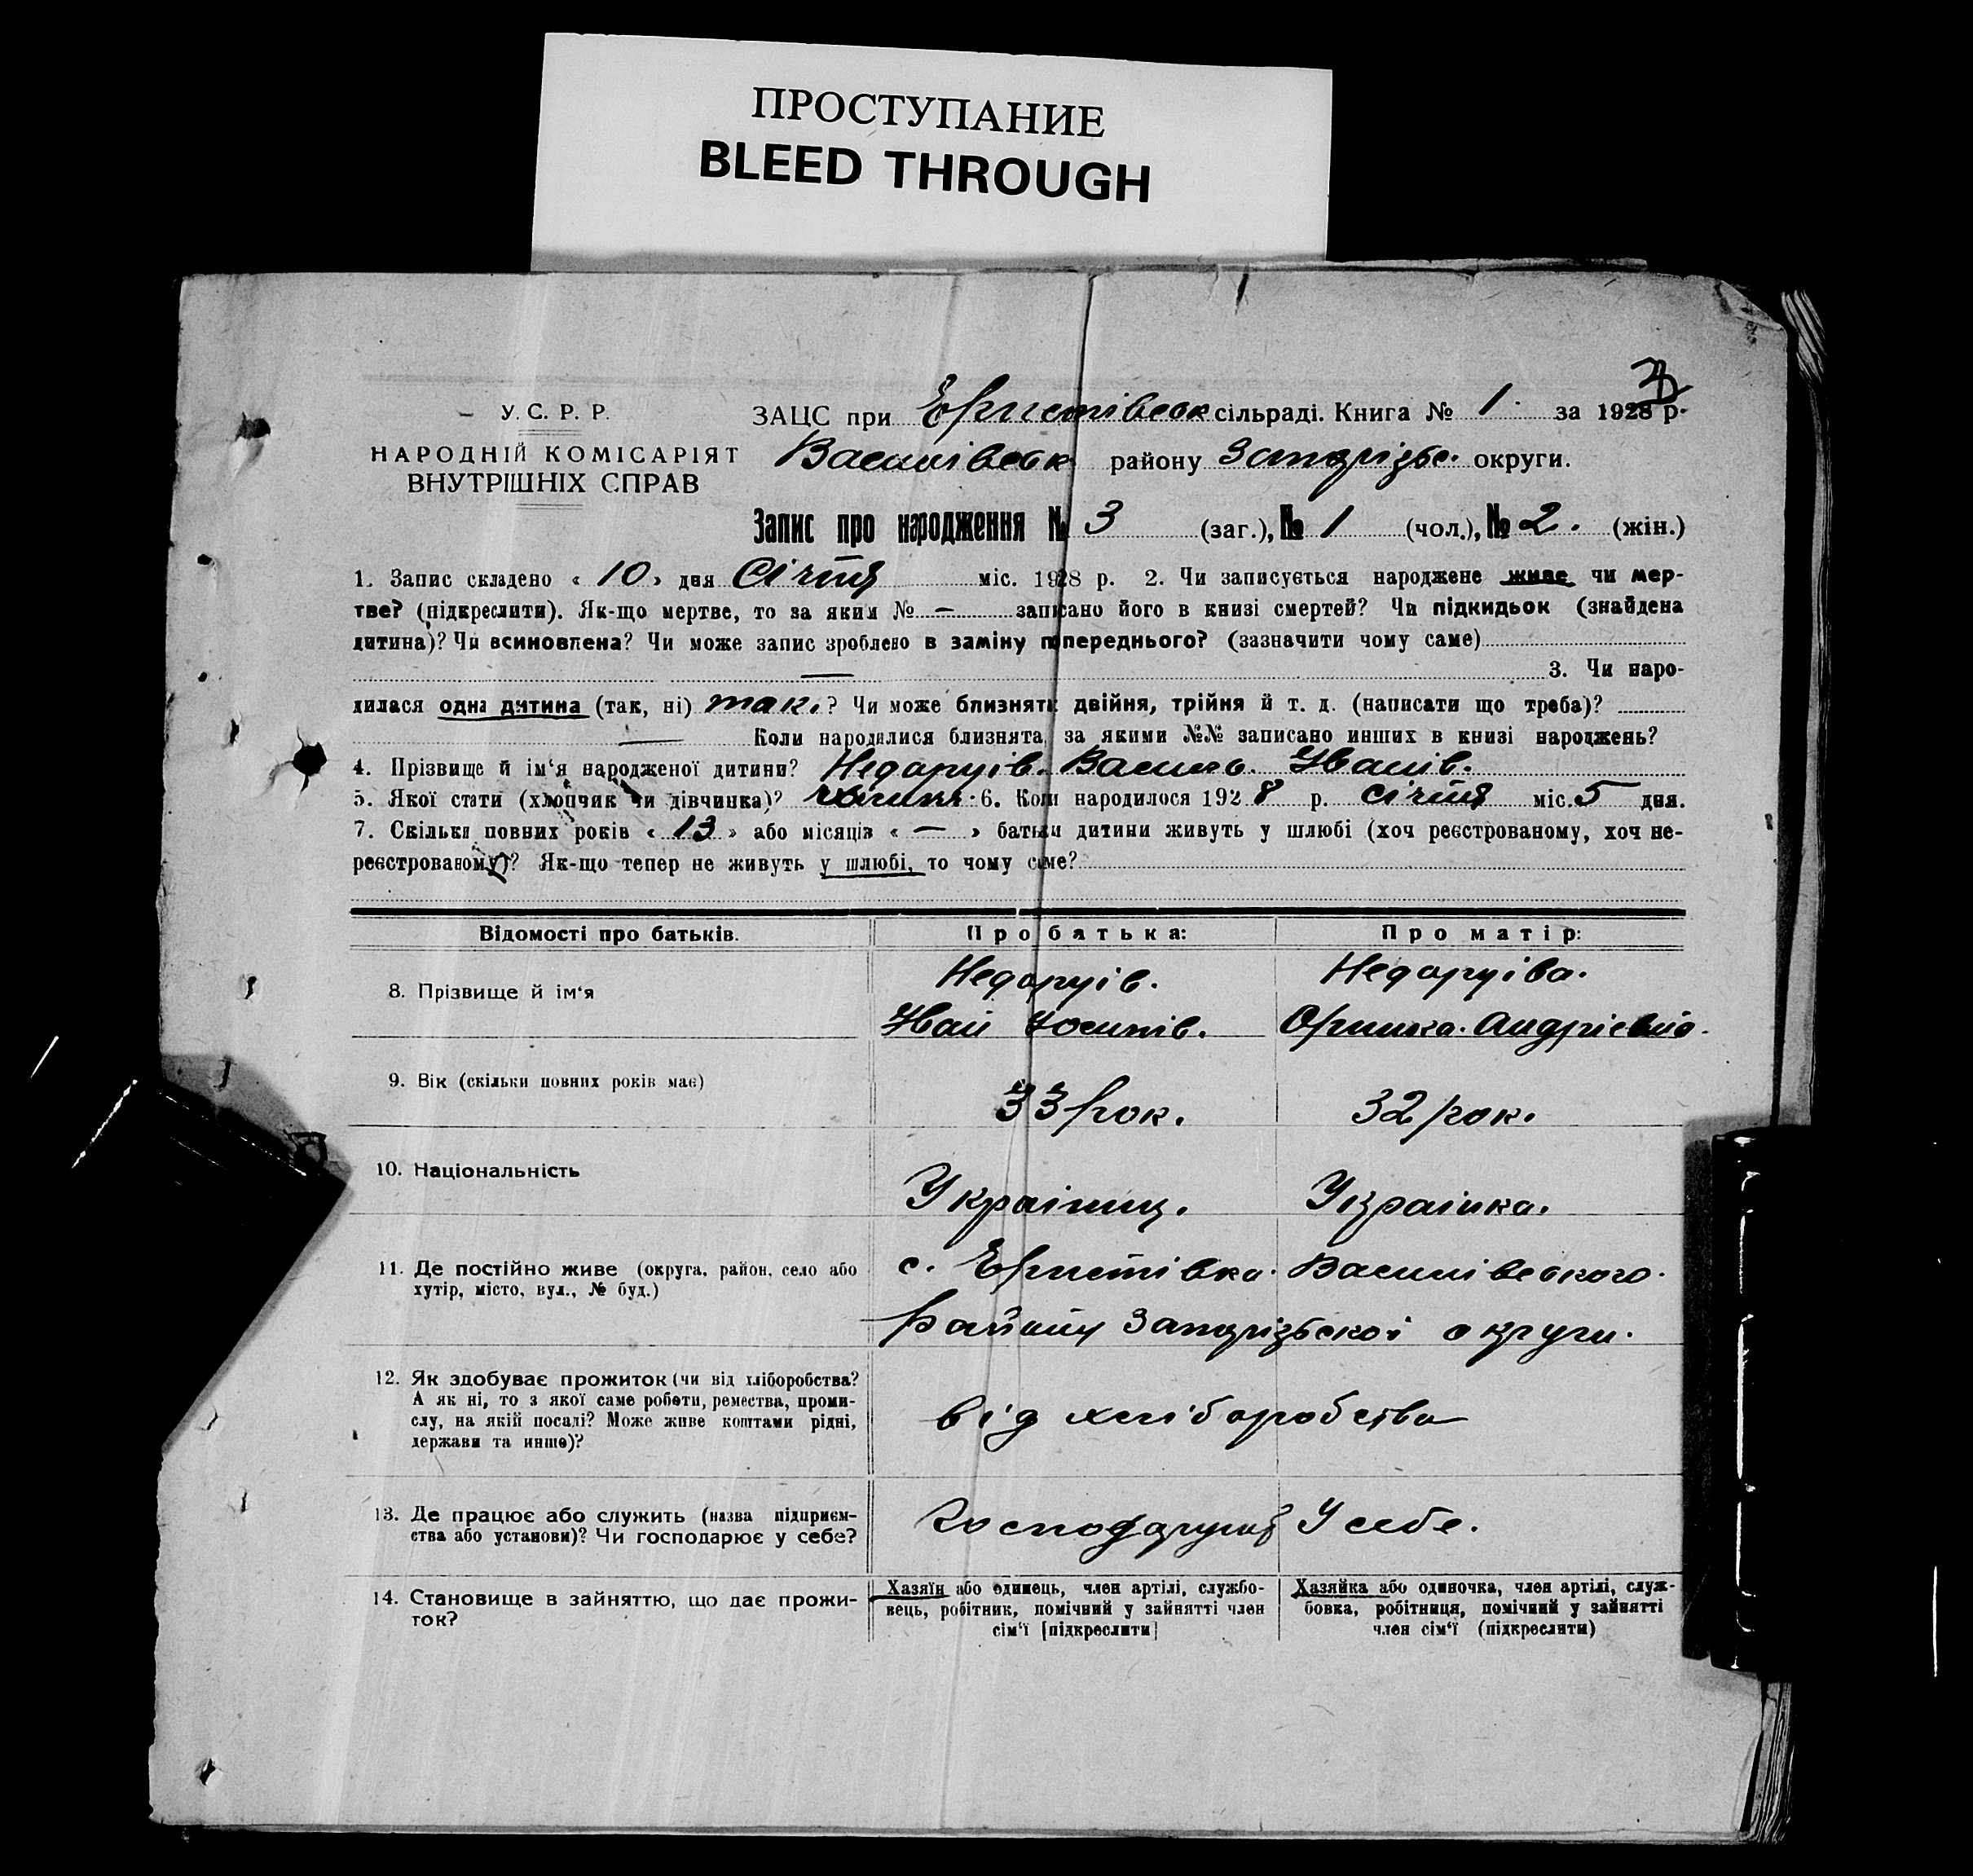 ПРОСТУПАНИЕ
BLEED THROUGH
У. С. Р. Р.
НАРОДНІЙ КОМІСАРІЯТ
ВНУТРІШНІХ СПРАВ
ЗАЦС при Еристівськ сільраді. Книга № 1. за 1928 р.
Василівськ району Запорізьк. округи.
Запис про народження № 3 (заг.), № 1 (чол.), № 2. (жін.)
1. Запис складено « 10 » дня Січня міс. 1928 р. 2. Чи записується народжене живе чи мер-
тве? (підкреслити). Як-що мертве, то за яким № — записано його в книзі смертей? Чи підкидьок (знайдена
дитина)? Чи всиновлена? Чи може запис зроблено в заміну попереднього? (зазначити чому саме)
— 3. Чи наро-
дилася одна дитина (так, ні) так. ? Чи може близнята двійня, трійня й т. д. (написати що треба)?
— Коли народилися близнята, за якими №№ записано инших в книзі народжень?
4. Прізвище й ім'я народженої дитини? Недоруів. Василь. Иванів.
5. Якої стати (хлопчик чи дівчинка)? 6. Коли народилося 1928 р. січня міс. 5 дня.
7. Скільки повних років « 13 » або місяців « — » батьки дитини живуть у шлюбі (хоч реєстрованому, хоч не-
реєстрованому)? Як-що тепер не живуть у шлюбі, то чому саме?
Відомості про батьків. Про батька: Про матір:
8. Прізвище й ім'я Недоруів. Недоруіва.
Иван Йосипів. Оришка. Андріевна.
9. Вік (скільки повних років має) 33 рок. 32 рок.
10. Національність Украінец. Украінка.
11. Де постійно живе (округа, район, село або
хутір, місто, вул., № буд.)
с. Еристівка. Василівського.
Району Запорізської округи.
12. Як здобуває прожиток (чи від хліборобства?
А як ні, то з якої саме роботи, ремества, проми-
слу, на якій посаді? Може живе коштами рідні,
держави та инше)?
від хліборобства
13. Де працює або служить (назва підприєм-
ства або установи)? Чи господарює у себе?
Господарує У себе.
14. Становище в зайняттю, що дає прожи-
ток?
Хазяїн або одинець, член артілі, службо-
вець, робітник, помічний у зайнятті член
сім'ї [підкреслити]
Хазяйка або одиночка, член артілі, служ-
бовка, робітниця, помічний у зайнятті
член сім'ї (підкреслити)